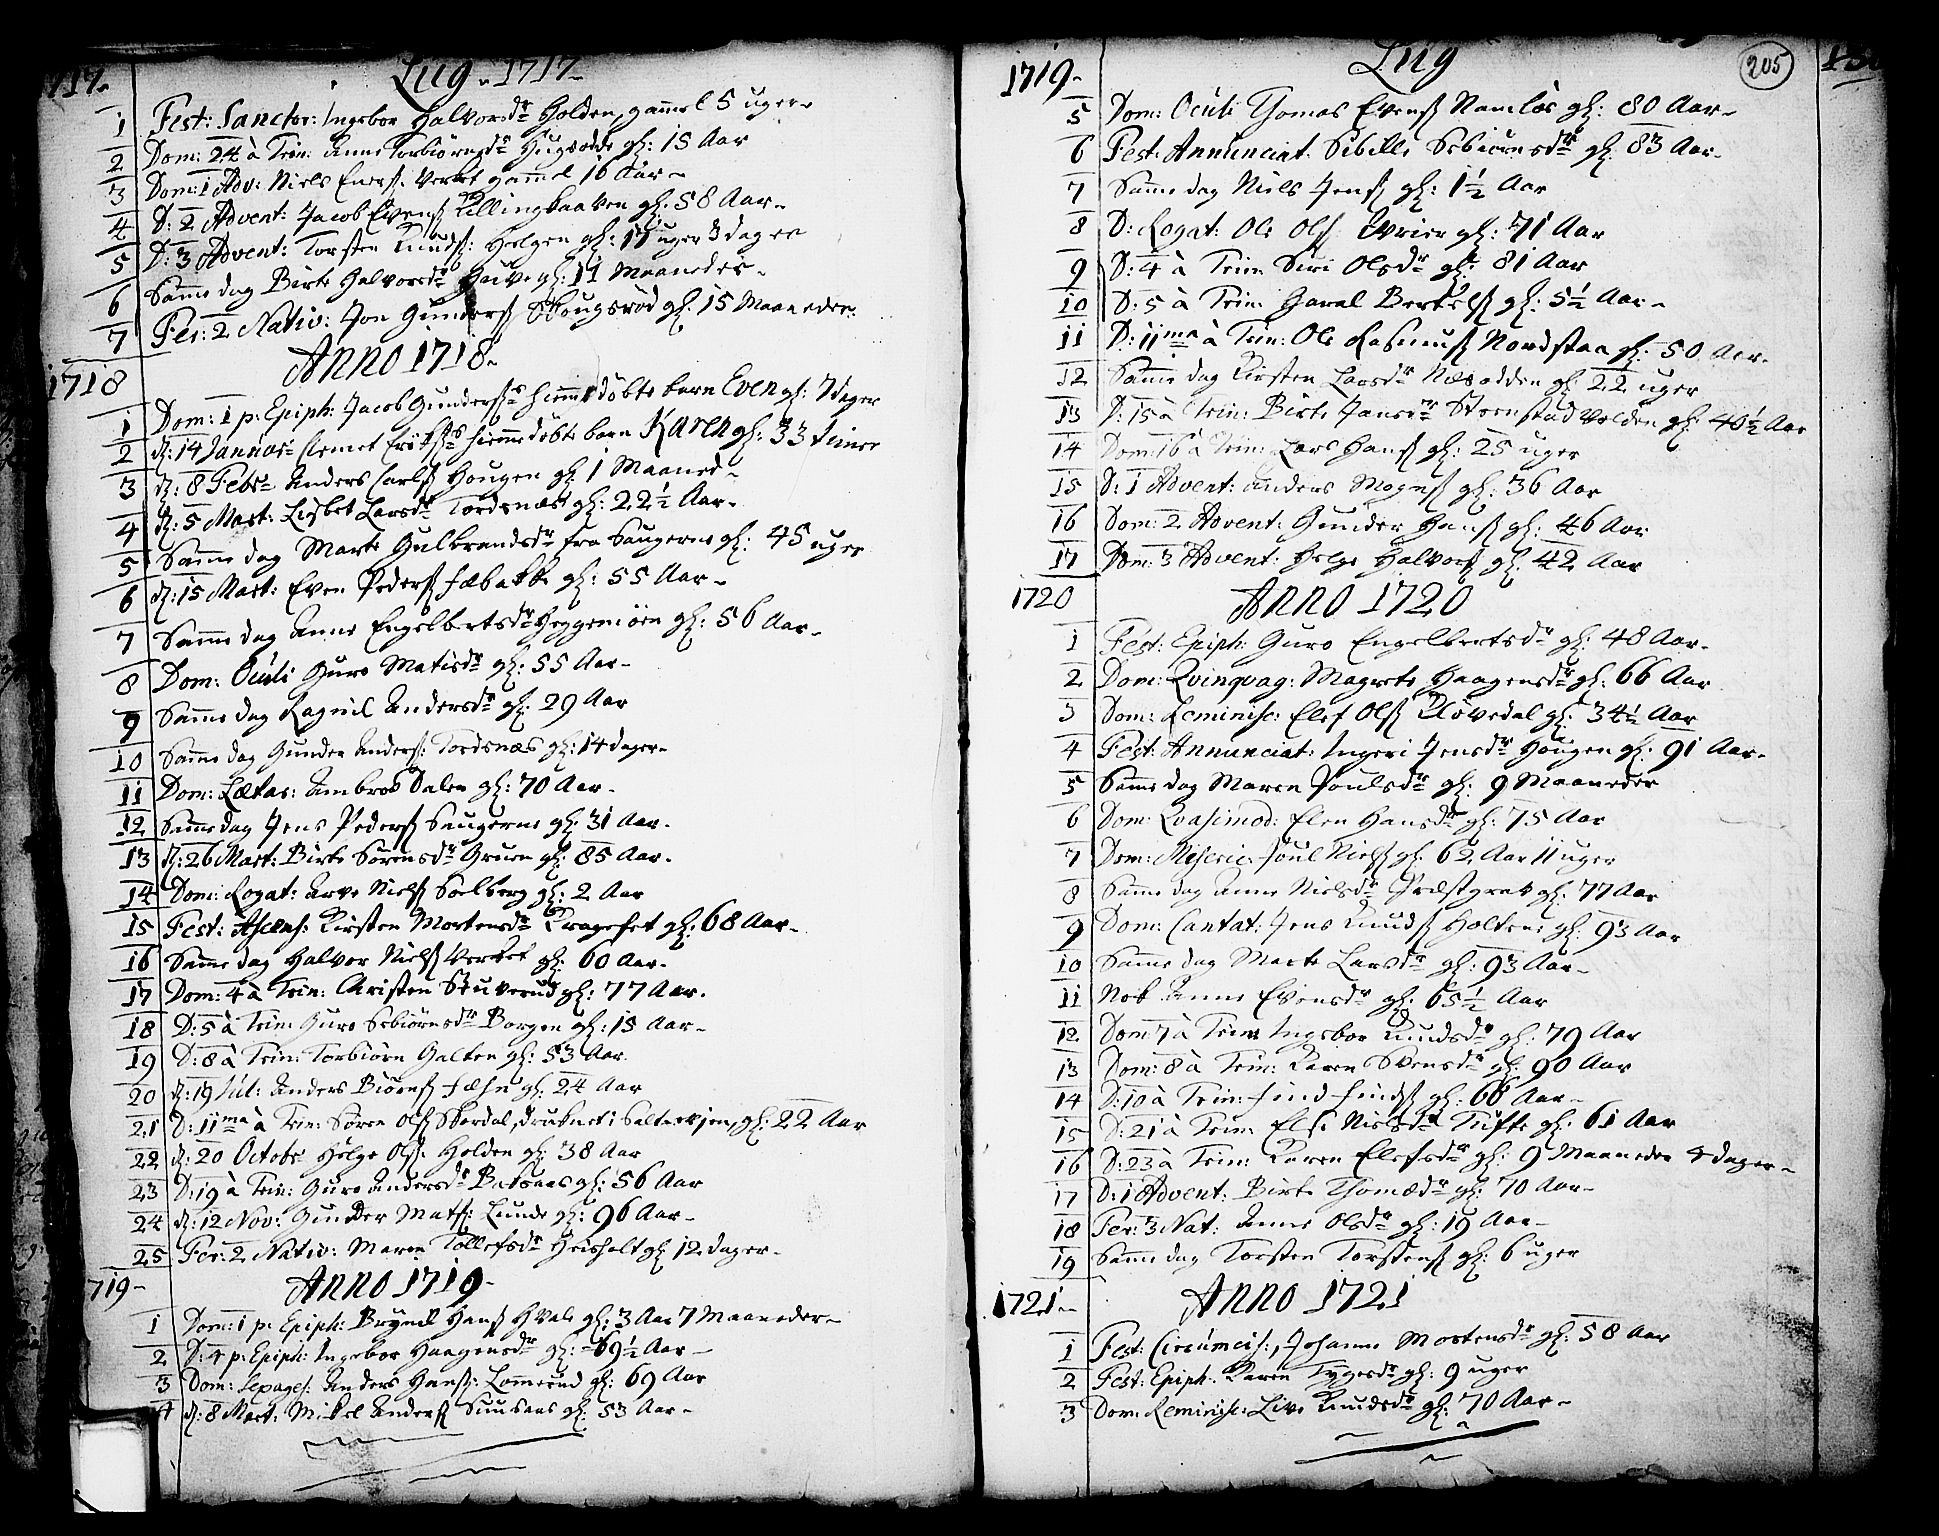 1717.
Lug 1717
1 Fest: Sanctor: Ingebor Halvorsdr Holden, gammel 5 uger
2 Dom: 24 à Trin: Anne Torbiørnsdr gl: 15 Aar
3 Dom: 1 Adv: Niels Verket gammel 16 Aar
4 D: 2 Advent: Jacob Evens: gl: 58 Aar
5 D: 3 Advent: Torsten Knuds: Helgen gl: 11 uger 3 dager
6 Samme dag Birte Halvorsdr gl: 11 Maaneder
7 Fer: 2 Nativ: Jon Gunders: Skougsrød gl: 15 Maaneder
Anno 1718
1718
1 Dom: 1 p: Epiph: Jacob Gunders: hiemme døbte barn Even gl: 7 dager
2 d: 14 Januar Clemet hiemme døbte barn Karen gl: 33 timer
3 d: 8 Febr Anders Carls: Hougen gl: 1 Maaned
4 d: 5 Mart: Lisbet Larsdr Tordsnæs gl: 22½ Aar
5 Samme dag Marte Gulbrandsdr fra Saugerne gl: 45 uger
6 d: 15 Mart: Even Peders: Fæbakke gl: 55 Aar
7 Samme dag Anne Engelbertsdr Heggemoen gl: 56 Aar
8 Dom: Oculi Guro Matisdr gl: 55 Aar
9 Samme dag Ragnil Andersdr gl: 29 Aar
10 Samme dag Gunder Anders: Tordsnæs gl: 14 dager
11 Dom: Lætar: Ambros Dalen gl: 70 Aar
12 Samme dag Jens Peders: Saugerne gl: 31 Aar
13 d: 26 Mart: Birte Sørensdr Gruen gl: 85 Aar
14 Dom: Rogat: Arve Niels: Solberg gl: 2 Aar
15 Fest: Ascens: Kirsten Mortensdr Krageset gl: 68 Aar
16 Samme dag Halvor Niels: Verket gl: 60 Aar
17 Dom: 4 à Trin: Christen Stuverud gl: 77 Aar
18 D: 5 à Trin: Guro Sebiørnsdr Borgen gl: 15 Aar
19 D: 8 à Trin: Torbiørn Galten gl: 53 Aar
20 d: 19 Jul: Anders Biørns: Fæhn gl: 24 Aar
21 D: 11ma à Trin: Søren Ols: druknet i gl: 22 Aar
22 d: 20 Octobr Helge Ols: Holden gl: 38 Aar
23 D: 19 à Trin: Guro Andersdr gl: 56 Aar
24 d: 12 Nov: Gunder Mats: Lunde gl: 96 Aar
25 Fer: 2 Nativ: Maren Tollefsdr Heisholt gl: 12 dager
719
Anno 1719
1 Dom: 1 p: Epiph: Brynil Hans: Hvale gl: 3 Aar 7 Maaneder
2 D: 4 p: Epiph: Ingebor Haagensdr gl: 69½ Aar
3 Dom: Anders Hans: Lommerud gl: 69 Aar
4 d: 8 Mart: Mikel Anders: gl: 53 Aar
1719
Lug
205
5 Dom: Oculi Thomas Evens: Namløs gl: 80 Aar
6 Fest: Annunciat: Sibille Sebiørnsdr gl: 83 Aar
7 Samme dag Niels Jens: gl: 1½ Aar
8 D: Rogat: Ole Ols: gl: 71 Aar
9 D: 4 à Trin: Siri Olsdr gl: 81 Aar
10 D: 5 à Trin: Bertels: gl: 5½ Aar
11 D: 11ma à Trin: Ole Rasmus: Nordstaa gl: 50 Aar
12 Samme dag Kirsten Larsdr Næsodden gl: 22 uger
13 D: 15 à Trin: Birte Jansdr Steenstadvolden gl: 40½ Aar
14 Dom: 16 à Trin: Lars Hans: gl: 25 uger
15 D: 1 Advent: Anders Mogens: gl: 36 Aar
16 Dom: 2 Advent: Gunder Hans: gl: 46 Aar
17 Dom: 3 Advent: Helge Halvors: gl: 42 Aar
1720
Anno 1720
1 Fest: Epiph: Guro Engelbertsdr gl: 48 Aar
2 Dom: Qvinqvag: Magrete Haagensdr gl: 66 Aar
3 Dom: Reminisc: Elef Ols: Kløvedal gl: 34½ Aar
4 Fest: Annunciat: Ingeri Jensdr Hougen gl: 91 Aar
5 Samme dag Maren Poulsdr gl: 9 Maaneder
6 Dom: Qvasimod: Elen Hansdr gl: 75 Aar
7 Dom: Miseric: Poul Niels: gl: 62 Aar 11 uger
8 Samme dag Anne Nielsdr gl: 77 Aar
9 Dom: Cantat: Jens Knuds: Holten gl: 93 Aar
10 Samme dag Marte Larsdr gl: 93 Aar
11 Anne Evensdr gl: 65½ Aar
12 Dom: 7 à Trin: Ingebor Knudsdr gl: 79 Aar
13 Dom: 8 à Trin: Karen Svensdr gl: 90 Aar
14 D: 10 à Trin: Find Finds: gl: 66 Aar
15 D: 21 à Trin: Else Nielsdr Tufte gl: 61 Aar
16 D: 23 à Trin: Karen Elefsdr gl: 9 Maaneder 4 dager
17 D: 1 Advent: Birte Thomædr gl: 70 Aar
18 Fer: 3 Nat: Anne Olsdr gl: 19 Aar
19 Samme dag Torsten Torstens: gl: 6 uger
1721
Anno 1721
1 Fest: Circumcis:, Johanne Mortensdr gl: 58 Aar
2 Fest: Epiph: Karen Tygesdr gl: 9 uger
3 Dom: Reminisc: Live Knudsdr gl: 70 Aar